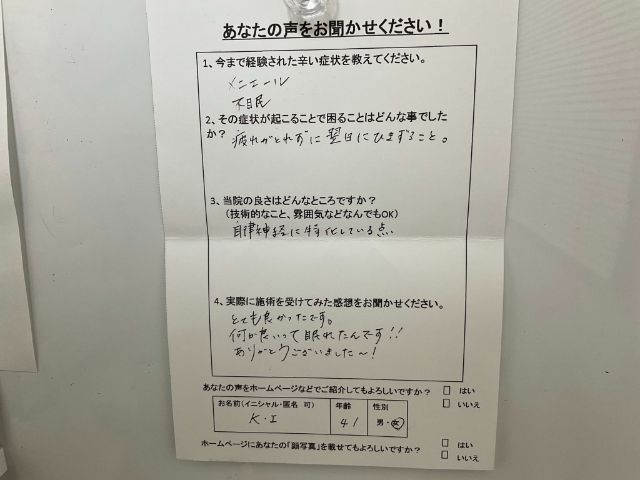 あなたの声をお聞かせください！
1、今まで経験された辛い症状を教えてください。
メニエール
不眠
2、その症状が起こることで困ることはどんな事でした
か？ 疲れがとれずに翌日にひきずること。
3、当院の良さはどんなところですか？
（技術的なこと、雰囲気などなんでもOK）
自律神経に特化している点
4、実際に施術を受けてみた感想をお聞かせください。
とても良かったです。
何が良いって眠れたんです!!
ありがとうございました～!
あなたの声をホームページなどでご紹介してもよろしいですか？ □ はい
□ いいえ
お名前（イニシャル・匿名 可） 年齢 性別
K・I 41 男・女
ホームページにあなたの「顔写真」を載せてもよろしいですか？ □ はい
□ いいえ